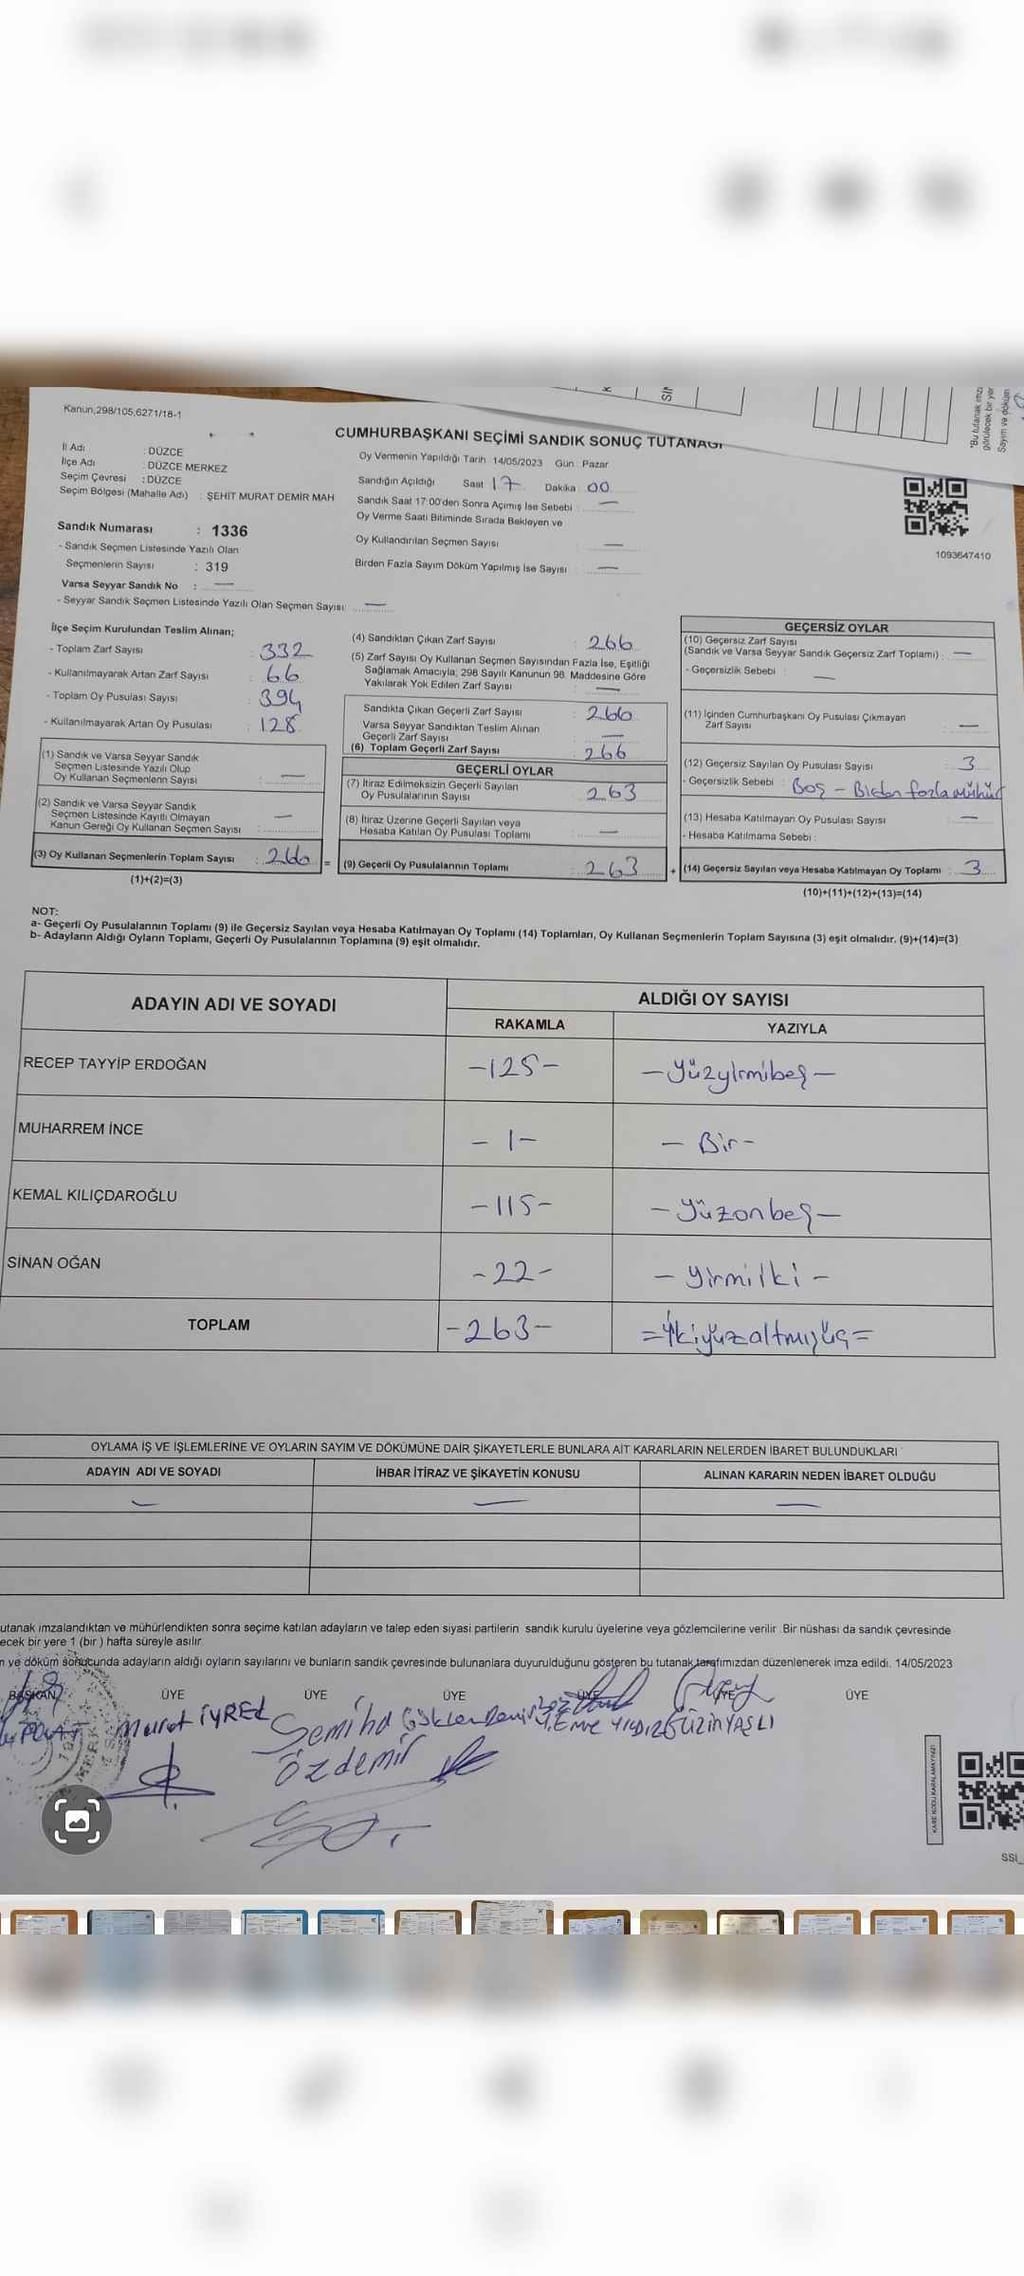 Kanun,298/105,6271/18-1
CUMHURBAŞKANI SEÇİMİ SANDIK SONUÇ TUTANAĞI
İl Adı : DÜZCE
İlçe Adı : DÜZCE MERKEZ
Seçim Çevresi : DÜZCE
Seçim Bölgesi (Mahalle Adı) : ŞEHİT MURAT DEMİR MAH
Sandık Numarası : 1336
- Sandık Seçmen Listesinde Yazılı Olan
Seçmenlerin Sayısı : 319
Varsa Seyyar Sandık No : —
- Seyyar Sandık Seçmen Listesinde Yazılı Olan Seçmen Sayısı: —
Oy Vermenin Yapıldığı Tarih 14/05/2023 Gün : Pazar
Sandığın Açıldığı Saat 17 Dakika 00
Sandık Saat 17:00'den Sonra Açımış İse Sebebi : —
Oy Verme Saati Bitiminde Sırada Bekleyen ve
Oy Kullandırılan Seçmen Sayısı —
Birden Fazla Sayım Döküm Yapılmış İse Sayısı —
1093647410
*Bu tutanak imza
görülecek bir yer
Sayım ve döküm
İlçe Seçim Kurulundan Teslim Alınan;
- Toplam Zarf Sayısı : 332
- Kullanılmayarak Artan Zarf Sayısı : 66
- Toplam Oy Pusulası Sayısı : 394
- Kullanılmayarak Artan Oy Pusulası : 128
(1) Sandık ve Varsa Seyyar Sandık
Seçmen Listesinde Yazılı Olup
Oy Kullanan Seçmenlerin Sayısı : —
(2) Sandık ve Varsa Seyyar Sandık
Seçmen Listesinde Kayıtlı Olmayan
Kanun Gereği Oy Kullanan Seçmen Sayısı : —
(3) Oy Kullanan Seçmenlerin Toplam Sayısı : 266 =
(1)+(2)=(3)
(4) Sandıktan Çıkan Zarf Sayısı : 266
(5) Zarf Sayısı Oy Kullanan Seçmen Sayısından Fazla İse, Eşitliği
Sağlamak Amacıyla, 298 Sayılı Kanunun 98. Maddesine Göre
Yakılarak Yok Edilen Zarf Sayısı : —
Sandıkta Çıkan Geçerli Zarf Sayısı : 266
Varsa Seyyar Sandıktan Teslim Alınan
Geçerli Zarf Sayısı : —
(6) Toplam Geçerli Zarf Sayısı : 266
GEÇERLİ OYLAR
(7) İtiraz Edilmeksizin Geçerli Sayılan
Oy Pusulalarının Sayısı : 263
(8) İtiraz Üzerine Geçerli Sayılan veya
Hesaba Katılan Oy Pusulası Toplamı : —
(9) Geçerli Oy Pusulalarının Toplamı : 263 +
GEÇERSİZ OYLAR
(10) Geçersiz Zarf Sayısı
(Sandık ve Varsa Seyyar Sandık Geçersiz Zarf Toplamı) : —
- Geçersizlik Sebebi : —
(11) İçinden Cumhurbaşkanı Oy Pusulası Çıkmayan
Zarf Sayısı : —
(12) Geçersiz Sayılan Oy Pusulası Sayısı : 3
- Geçersizlik Sebebi : Boş - Birden fazla mühür
(13) Hesaba Katılmayan Oy Pusulası Sayısı : —
- Hesaba Katılmama Sebebi :
(14) Geçersiz Sayılan veya Hesaba Katılmayan Oy Toplamı : 3
(10)+(11)+(12)+(13)=(14)
NOT:
a- Geçerli Oy Pusulalarının Toplamı (9) ile Geçersiz Sayılan veya Hesaba Katılmayan Oy Toplamı (14) Toplamları, Oy Kullanan Seçmenlerin Toplam Sayısına (3) eşit olmalıdır. (9)+(14)=(3)
b- Adayların Aldığı Oyların Toplamı, Geçerli Oy Pusulalarının Toplamına (9) eşit olmalıdır.
ADAYIN ADI VE SOYADI ALDIĞI OY SAYISI
RAKAMLA YAZIYLA
RECEP TAYYİP ERDOĞAN -125- -Yüzyirmibeş-
MUHARREM İNCE -1- -Bir-
KEMAL KILIÇDAROĞLU -115- -Yüzonbeş-
SİNAN OĞAN -22- -Yirmiiki-
TOPLAM -263- =İkiyüzaltmışüç=
OYLAMA İŞ VE İŞLEMLERİNE VE OYLARIN SAYIM VE DÖKÜMÜNE DAİR ŞİKAYETLERLE BUNLARA AİT KARARLARIN NELERDEN İBARET BULUNDUKLARI
ADAYIN ADI VE SOYADI İHBAR İTİRAZ VE ŞİKAYETİN KONUSU ALINAN KARARIN NEDEN İBARET OLDUĞU
— — —
utanak imzalandıktan ve mühürlendikten sonra seçime katılan adayların ve talep eden siyasi partilerin sandık kurulu üyelerine veya gözlemcilerine verilir. Bir nüshası da sandık çevresinde
ecek bir yere 1 (bir) hafta süreyle asılır.
n ve döküm sonucunda adayların aldığı oyların sayılarını ve bunların sandık çevresinde bulunanlara duyurulduğunu gösteren bu tutanak tarafımızdan düzenlenerek imza edildi. 14/05/2023
BAŞKAN ÜYE ÜYE ÜYE ÜYE ÜYE ÜYE
POLAT Murat İYREL Semiha Gökler Demir Emre YILDIZ GÜZİN YAŞLI
Özdemir
KARE KODU KARALAMAYINIZ!
SSI_